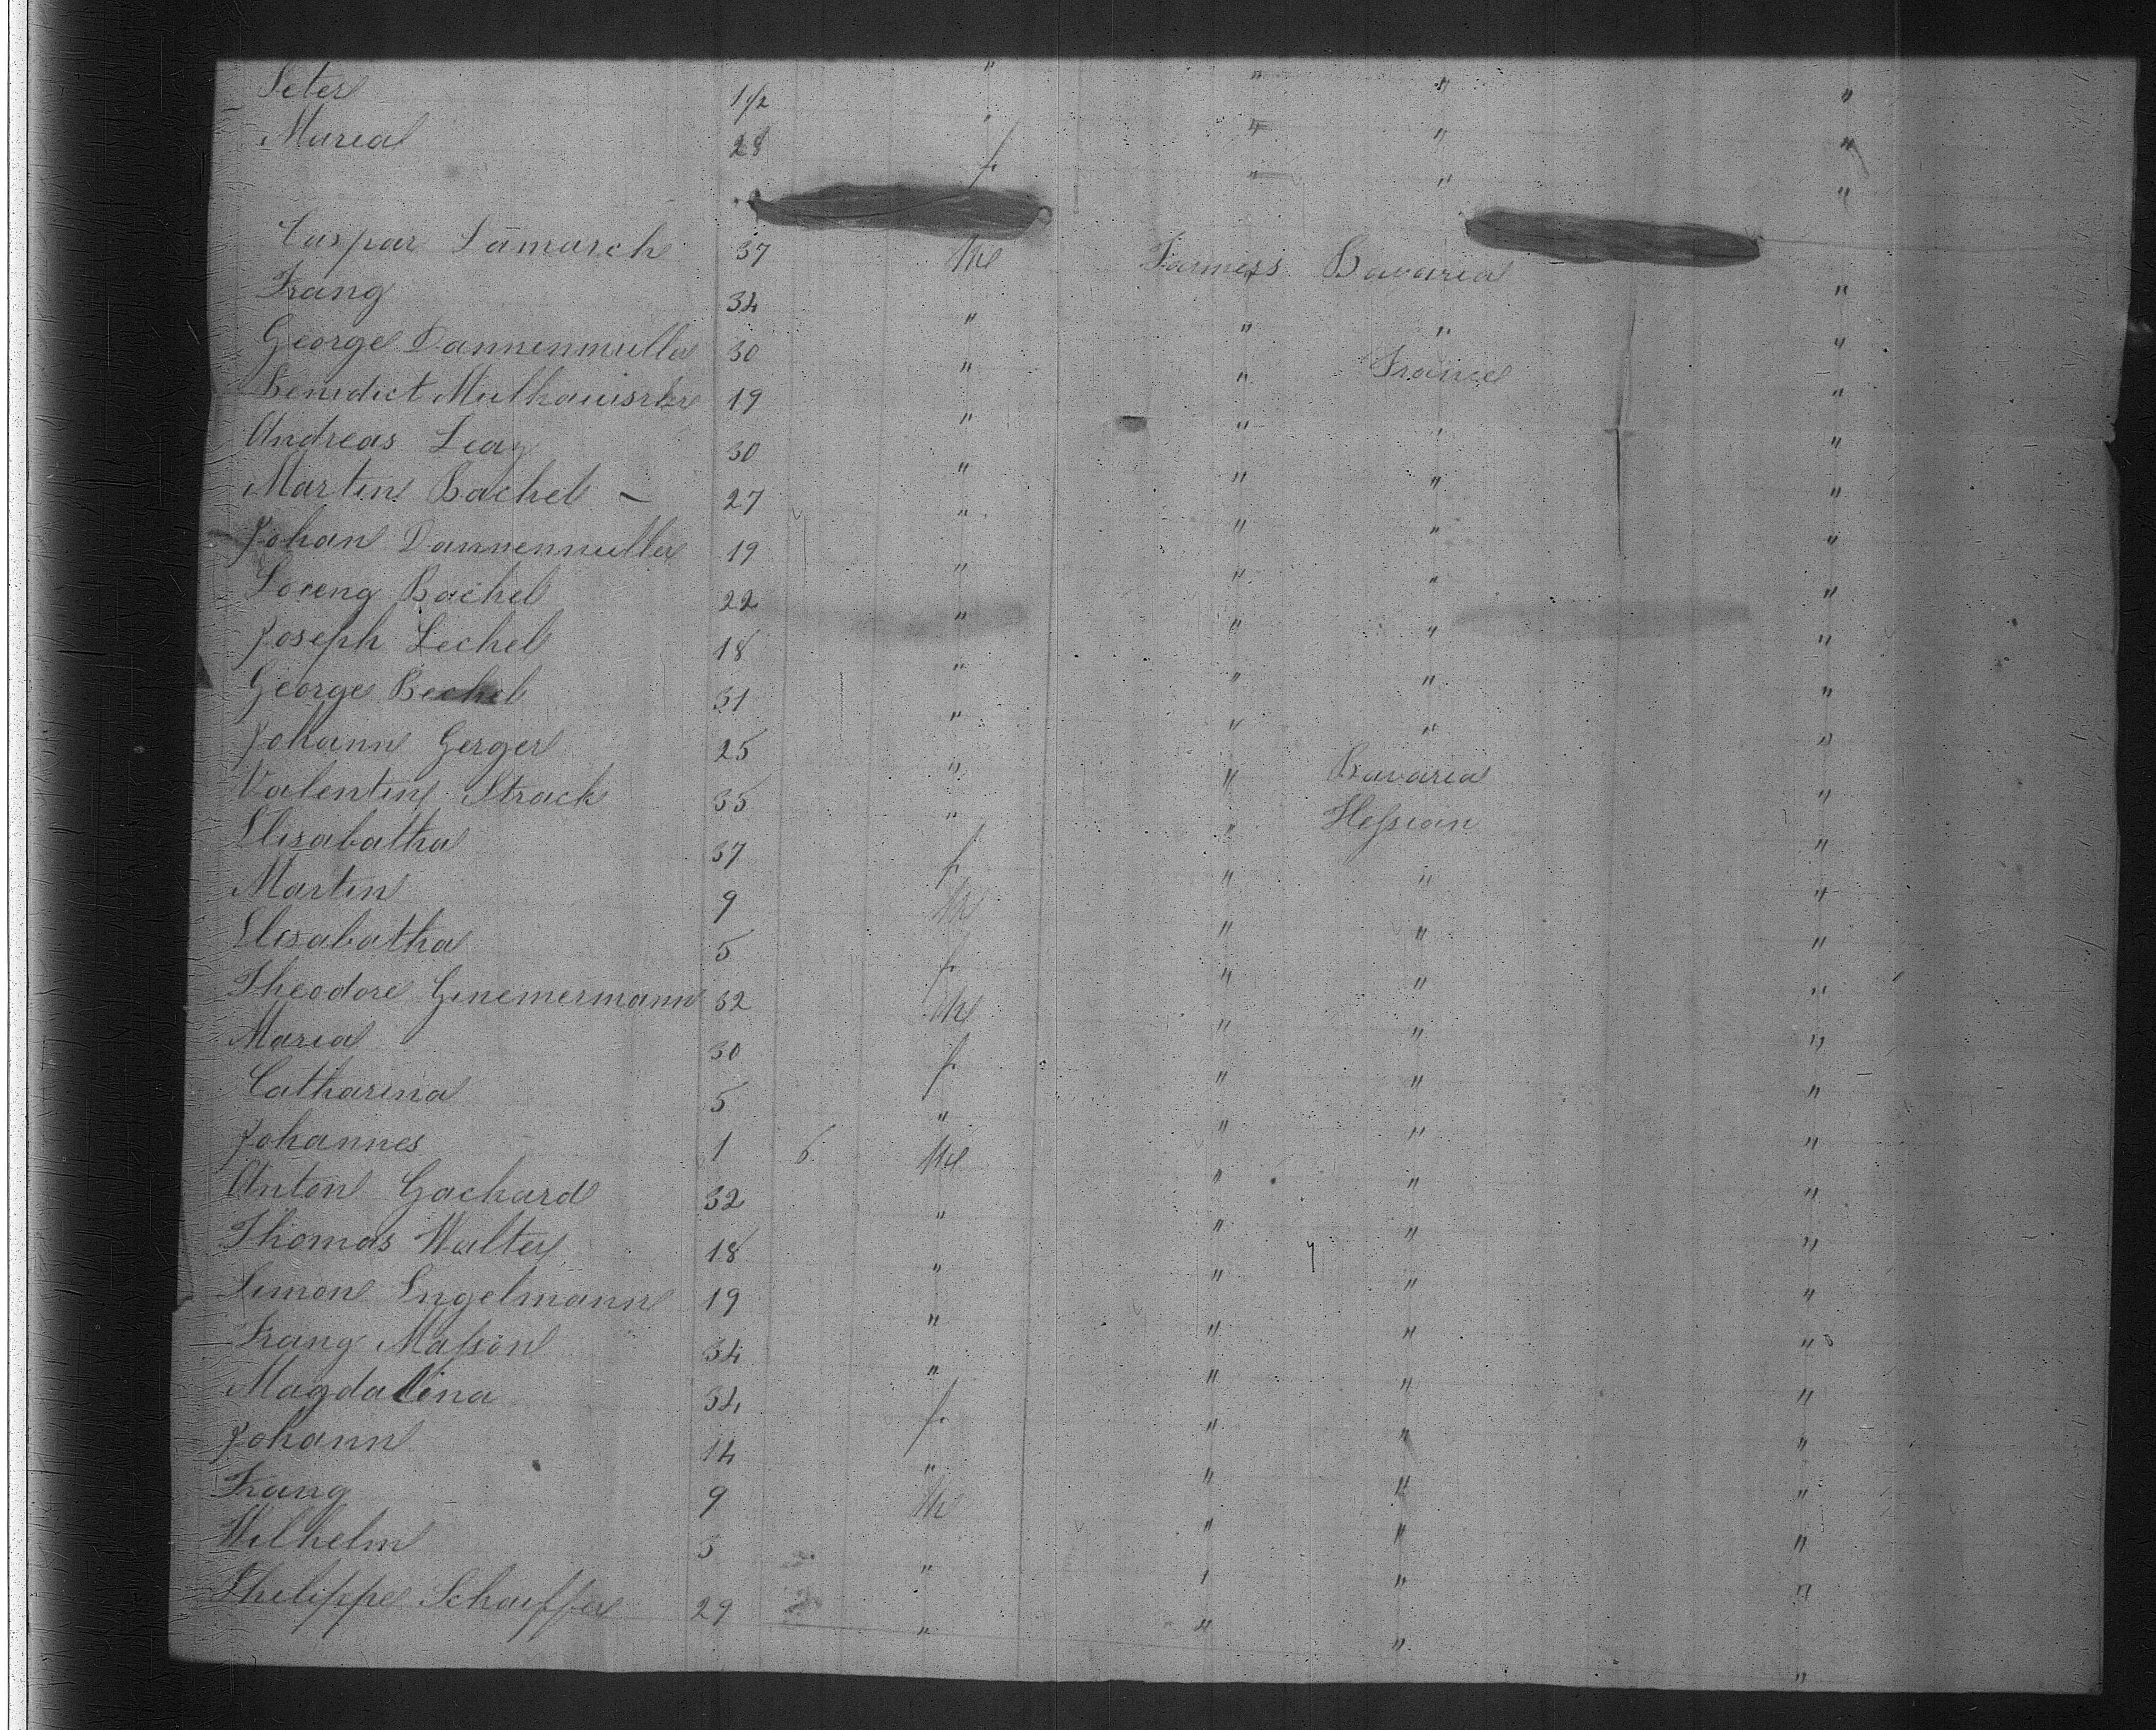 Peter 1 1/2 " " " "
Maria 28 f. " " "
Caspar Lamarch 37 M Farmers Bavaria "
Franz 34 " " " "
George Dannenmuller 30 " " France "
Benedict 19 " " " "
Andreas 30 " " " "
Martin Bachel – 27 " " " "
Johan Dannenmuller 19 " " " "
Lorenz Bachel 22 " " " "
Joseph Lechel 18 " " " "
George Bechel 31 " " " "
Johann Gerger 25 " " Bavaria "
Valentin Strack 35 " " Hessian "
Elisabatha 37 f. " " "
Martin 9 M " " "
Elisabatha 5 f. " " "
Theodore Ginemermann 32 M " " "
Maria 30 f. " " "
Catharina 5 " " " "
Johannes 1 6 M " " "
Anton Gachard 32 " " " "
Thomas Walter 18 " " " "
Simon Engelmann 19 " " " "
Franz Masson 34 " " " "
Magdalina 34 f. " " "
Johann 14 " " " "
Franz 9 M " " "
Wilhelm 3 " " " "
Philippe Schaeffer 29 " " " "